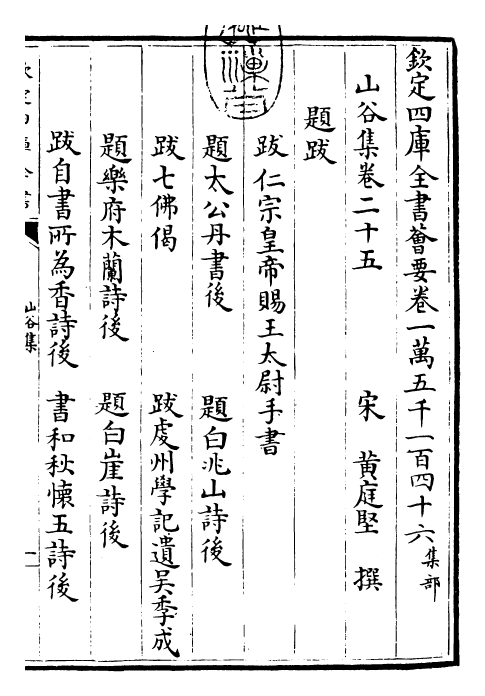 欽定四庫全書薈要卷一萬五千一百四十六集部
山谷集卷二十五 宋 黄庭堅 撰
題跋
跋仁宗皇帝賜王太尉手書
題太公丹書後 題白兆山詩後
跋七佛偈 跋處州學記遺吴季成
題樂府木蘭詩後 題白崖詩後
跋自書所為香詩後 書和秋懷五詩後
山谷集